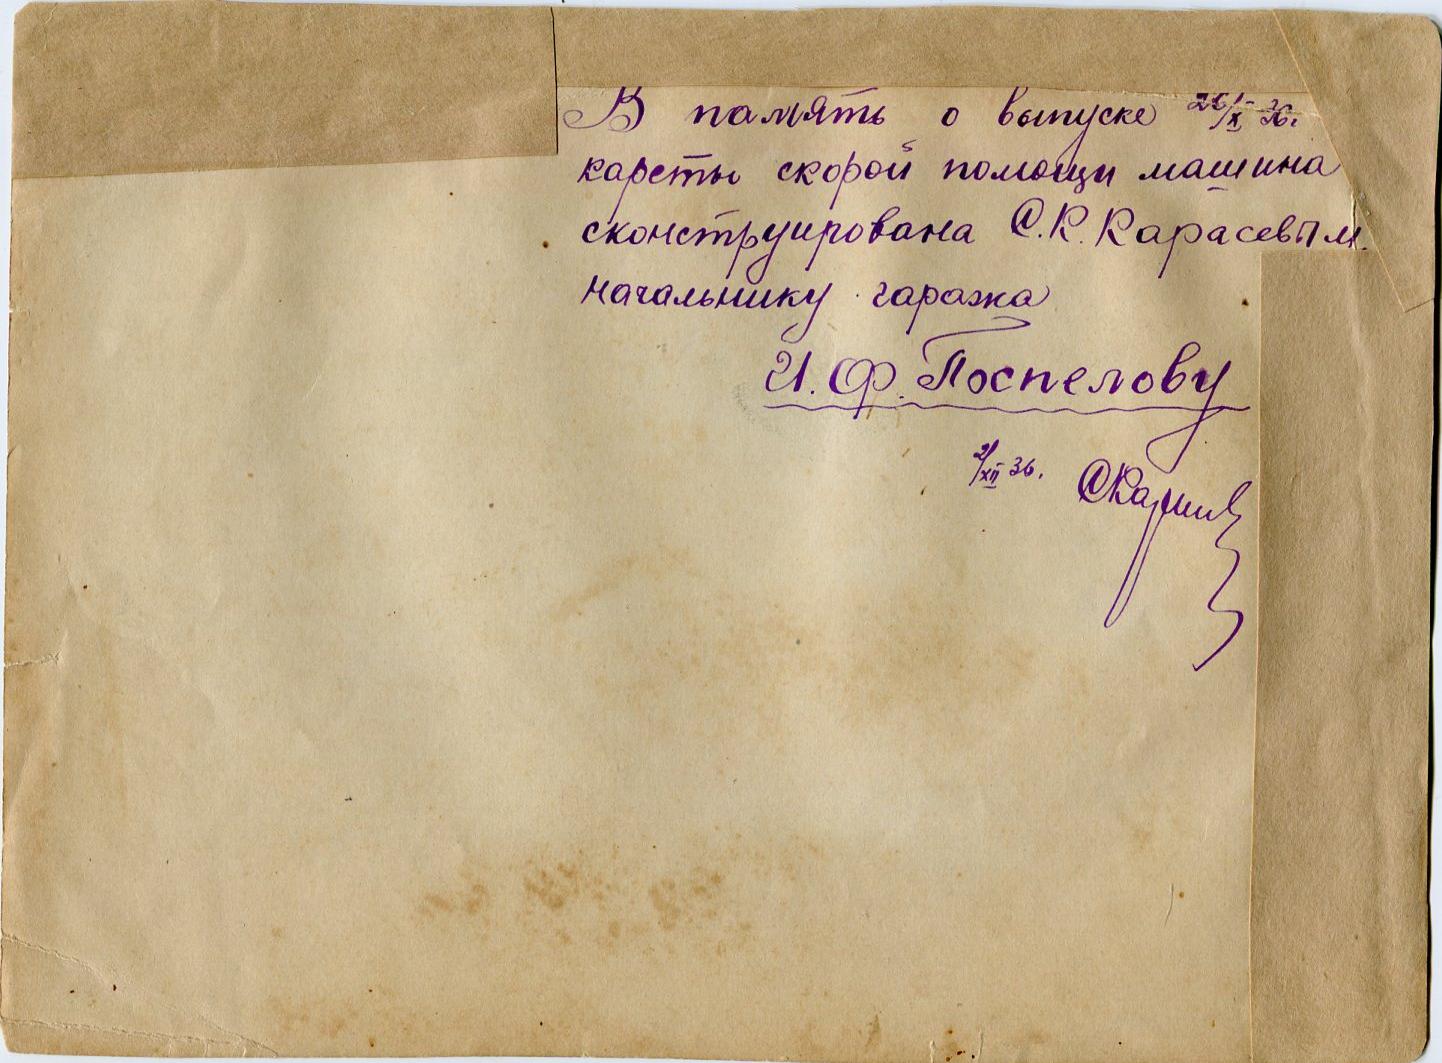 В память о выпуске 26/X 36 г.
кареты скорой помощи машина
сконструирована С.К. Карасевым.
начальнику гаража
И.Ф. Поспелову
2/XII 36.